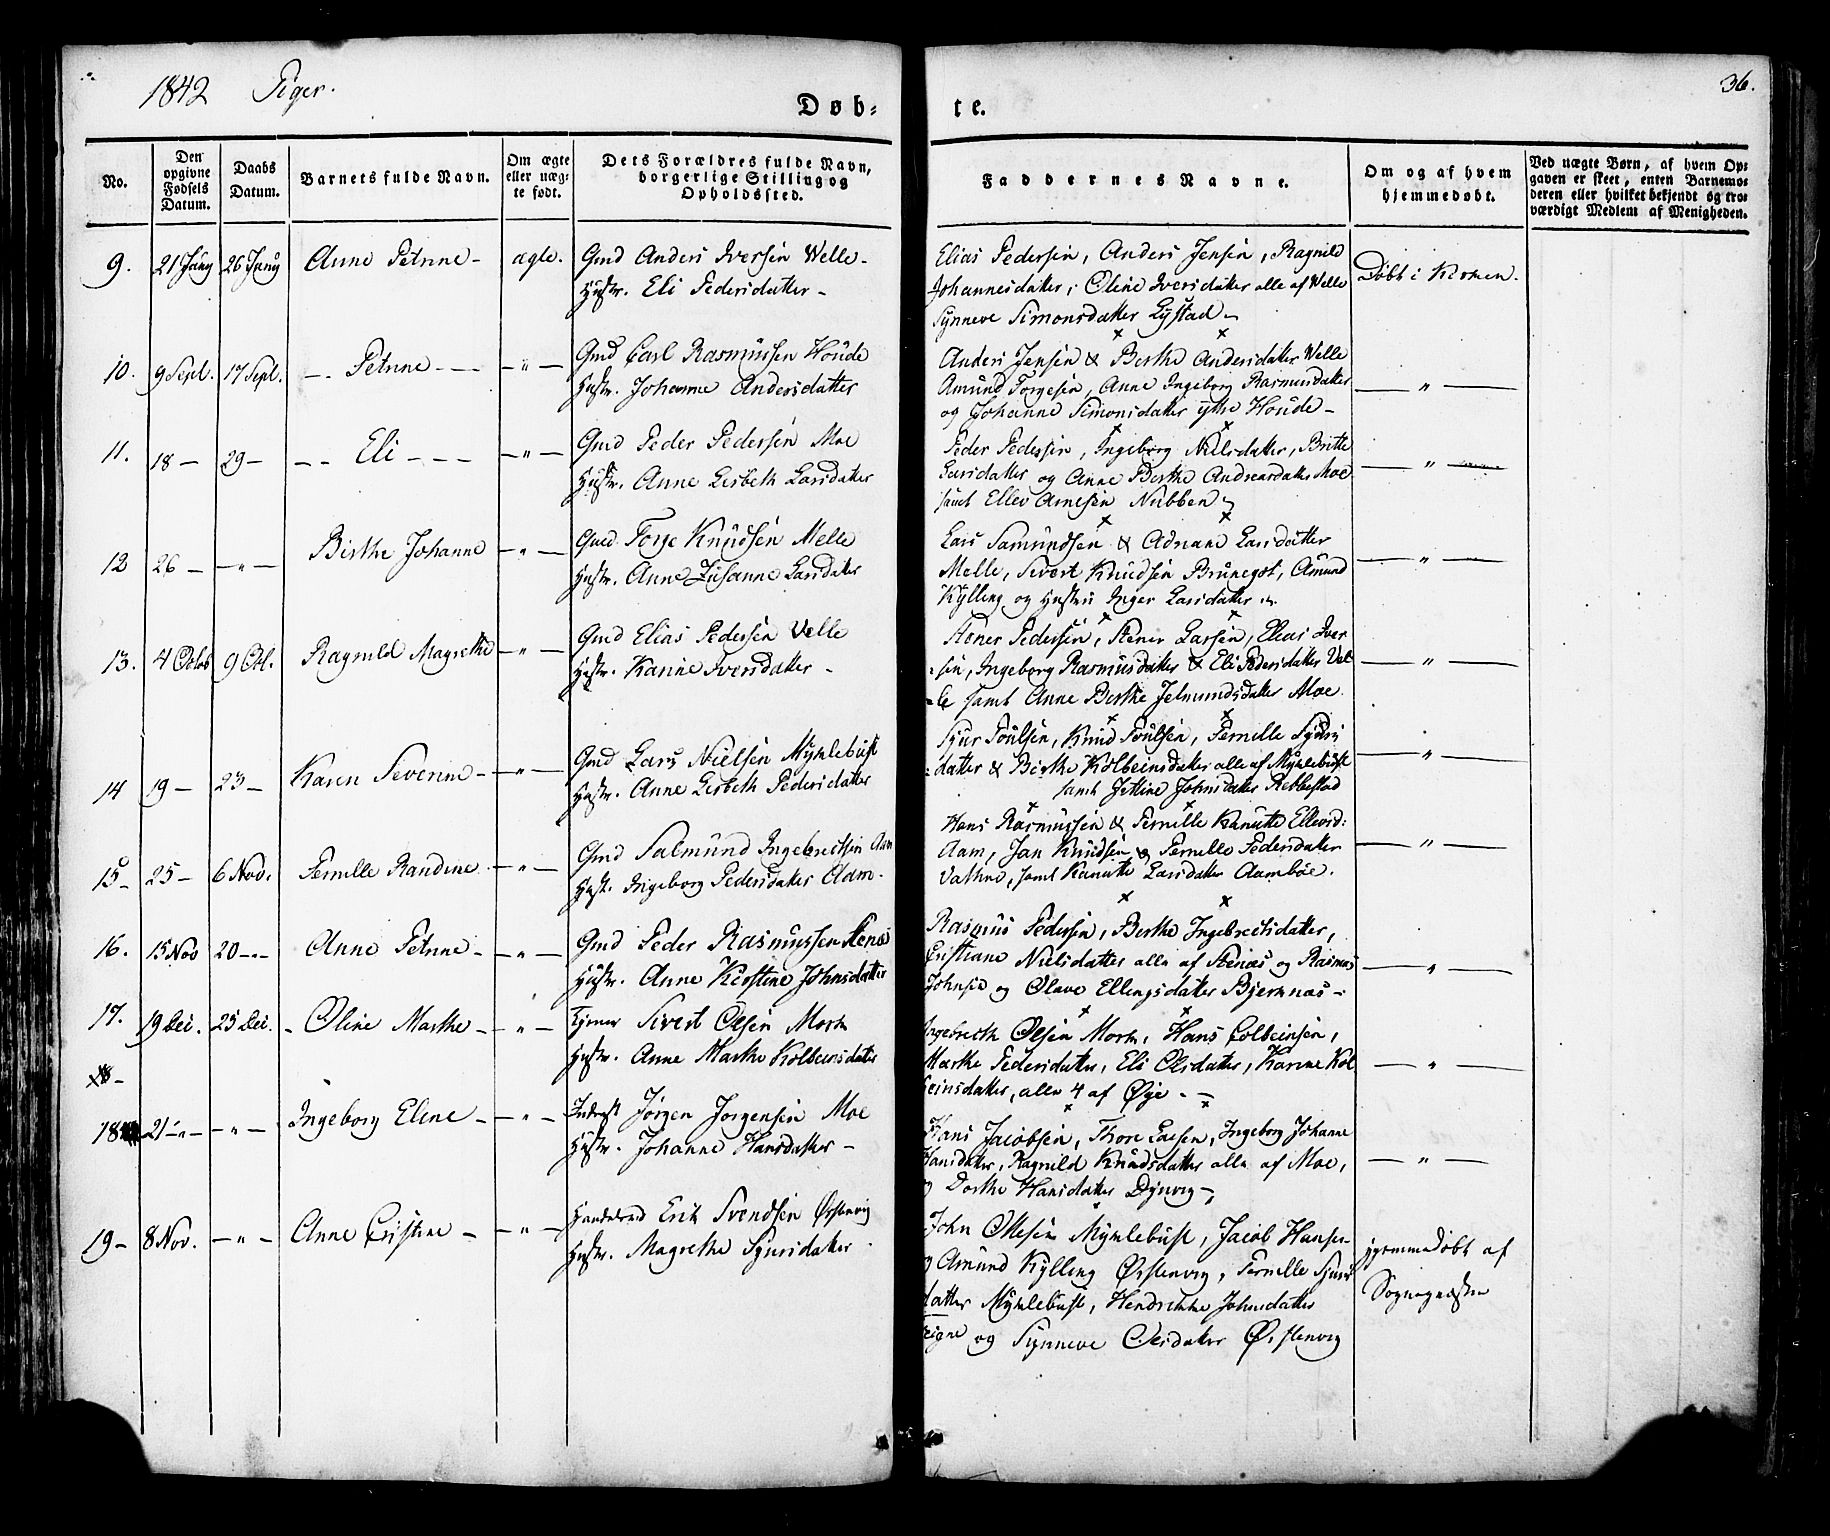 1842 Piger.
36.
Døb=
te.
No.
Den opgivne Fødsels Datum.
Daabs Datum.
Barnets fulde Navn.
Om ægte eller uæg= te født.
Dets Forældres fulde Navn, borgerlige Stilling og Opholdssted.
Faddernes Navne.
Om og af hvem hjemmedøbt.
Ved uægte Børn, af hvem Op= gaven er skeet, enten Barnemo= deren eller hvilket bekjendt og tro= værdigt Medlem af Menigheden.
9. 21 Juny 26 Juny Anne Petrine – ægte. Gmd Anders Iversen Welle –
Hustr. Eli Pedersdatter –
Elias Pedersen, Anders Jensen, Ragnild
Johannesdatter, Oline Iversdatter alle af Welle
Synneve Simonsdatter Lystad –
Døbt i Kirken.
10. 9 Sept. 17 Sept. – – Petrine – – – " – Gmd Carl Rasmusen Houde
Hustr. Johanne Andersdatter
Anders Jensen & Berthe Andersdatter Welle
Amund Torgesen, Anne Ingeborg Rasmusdatter
og Johanne Simonsdatter ytre Houde –
– " –
11. 18 – 29 – – – Eli – – – – " – Gmd Peder Pedersen Moe
Hustr. Anne Lisbeth Larsdatter
Peder Pedersen, Ingeborg Nielsdatter, Britte
Larsdatter og Anne Berthe Andreasdatter Moe
samt Ellev Arnesen Nubben
– " –
12 26 – – " – Birthe Johanne – " – Gmd Torge Knudsen Melle
Hustr. Anne Zusanne Larsdatter
Lars Samundsen & Adriane Larsdatter
Melle, Sivert Knudsen Brunegot, Amund
Kylling og Hustru Inger Larsdatter
– " –
13. 4 Octob 9 Oct. Ragnild Magrethe – " – Gmd Elias Pedersen Velle
Hustr. Karine Iversdatter –
Stener Pedersen, Stener Larsen, Elias Iver
=sen, Ingeborg Rasmusdatter & Eli Pedersdatter Vel
=le samt Anne Berthe Jetmundsdatter Moe
– " –
14 19 – 23 – Karen Severine – – " – Gmd Lars Nielsen Myklebust
Hustr. Anne Lisbeth Pedersdatter
Sjur Poulsen, Knud Poulsen, Pernille Sjurs
=datter & Birthe Kolbeinsdatter alle af Myklebust
samt Johnsdatter Rebbestad
– " –
15 – 25 – 6 Nov. Pernille Randine – " – Gmd Salmund Ingebretsen Aam
Hustr. Ingeborg Pedersdatter Aam.
Hans Rasmussen & Pernille Kanutte Ellevsd:
Aam, Jan Knudsen & Pernille Pedersdatter
Vathne, samt Kanutte Larsdatter Aambøe.
– " –
16. 15 Nov 20 – " – Anne Petrine – – " – Gmd Peder Rasmussen Stenæs
Hustr. Anne Kirstine Johnsdatter
Rasmus Pedersen, Berthe Ingebretsdatter,
Cristiane Nielsdatter alle af Stenæs og Rasmus
Johnsen og Olave Ellingsdatter Bjerknæs –
– " –
17. 19 Dec. 25 Dec. – Oline Marthe – – " – Sivert Olsen Mork
Hustr. Anne Marthe Kolbeinsdatter
Ingebreth Olsen Mork, Hans Colbeinsen,
Marthe Pedersdatter, Eli Olsdatter, Karine Kol
beinsdatter, alle 4 af Øye –
– " –
18 21 – " – – " – Ingeborg Eline – – " – Inderst Jørgen Jorgensen Moe
Hustr. Johanne Hansdatter –
Hans Jacobsen, Thore Larsen, Ingeborg Johanne
Hansdatter, Ragnild Knudsdatter alle af Moe,
og Dorthe Hansdatter
– " –
19 – 8 Nov. – " – Anne Cristine – – " – Handelsmd Erik Svendsen Ørstenvig
Hustr. Magrethe Sjursdatter
John Olesen Myklebust, Jacob Hansen
og Amund Kylling Ørstenvig, Pernille Sjurs
datter Myklebust, Hendrikke Johnsdatter
og Synneve Olesdatter Ørstenvig
hjemmedøbt af
Sognepræsten